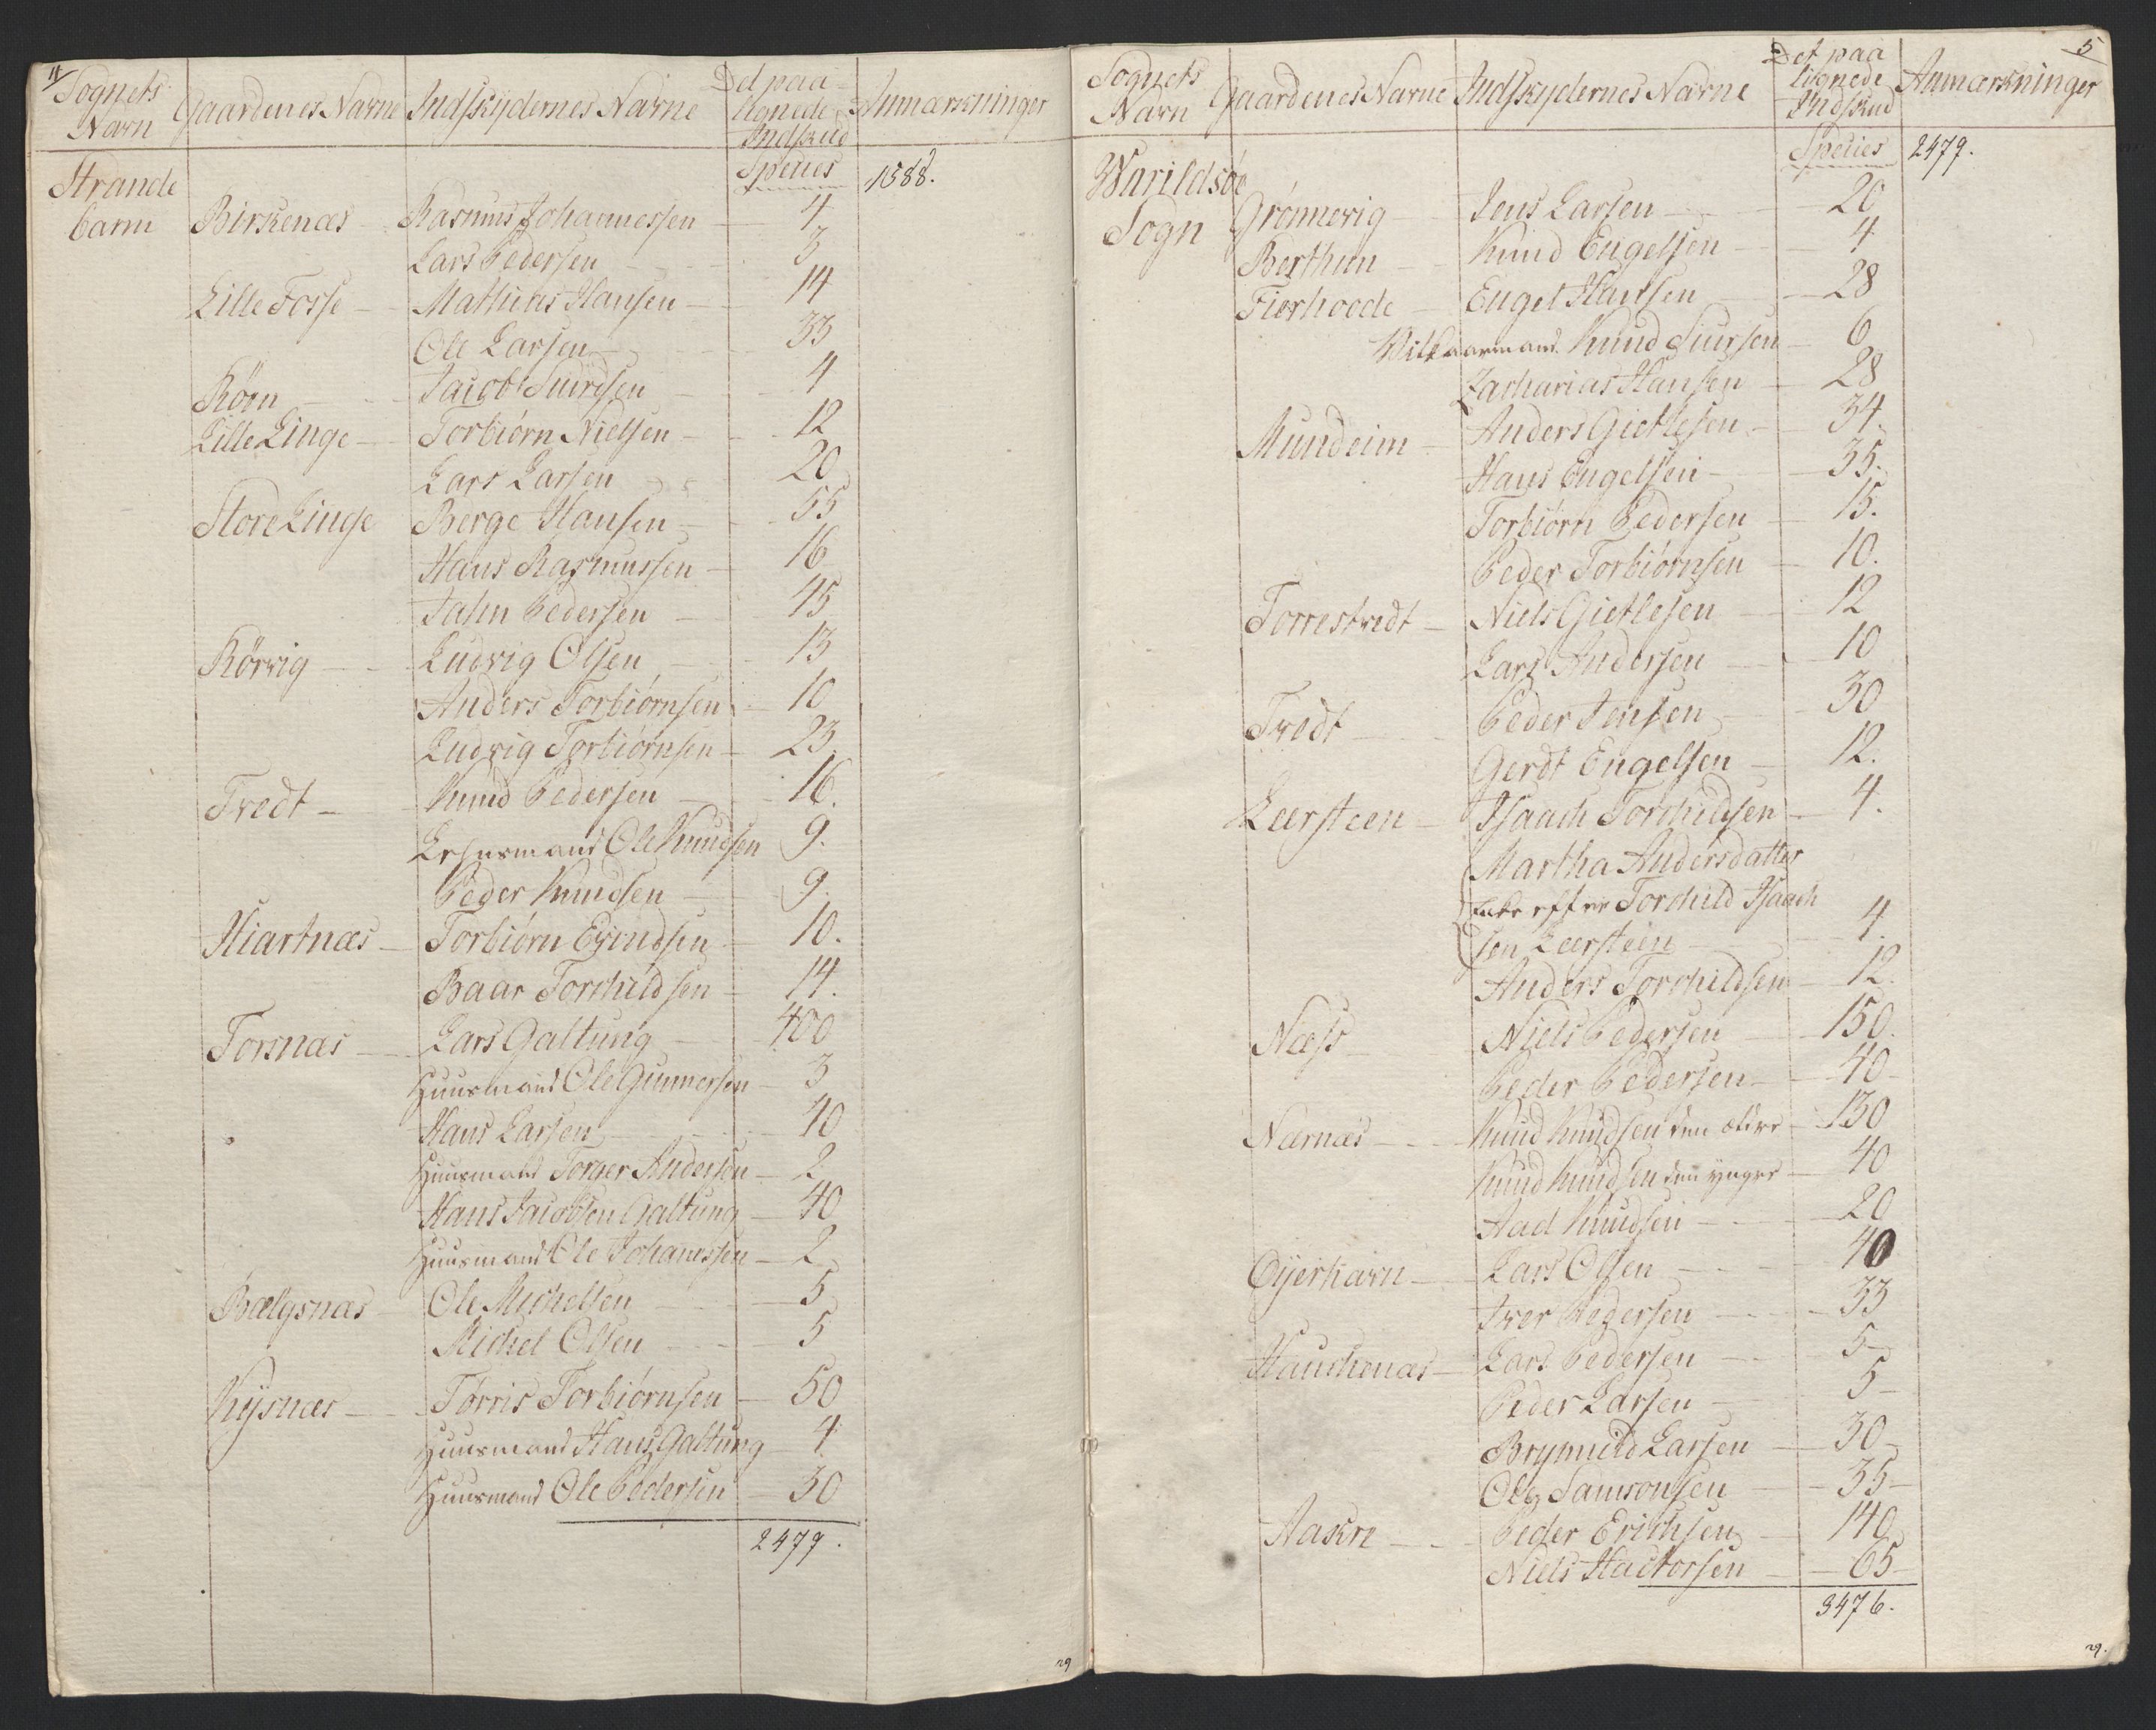 4
Sognets Navn Gaardenes Navne Indskydernes Navne Det paa lignede Indskud Anmærkninger
Species 1588.
Strande
barm Birkenæs Rasmus Johannessen 4
Lars Pedersen 3
Lille Fosse Mathias Hansen 14
Ole Larsen 33
Röen Jacob Siursen 4
Lille Linge Torbiörn Nielsen 12
Lars Larsen 20
Store Linge Berge Hansen 55
Hans Rasmussen 16
Jahn Pedersen 45
Rörvig Ludvig Olsen 13
Anders Torbiörnsen 10
Ludvig Torbiörnsen 23
Tvedt Knud Pedersen 16.
Lehnsmand Ole Knudsen 9.
Peder Knudsen 9.
Hiartnæs Torbiörn Eyvindsen 10.
Baar Torchildsen 14.
Torsnæs Lars Galtung 400
Huusmand Ole Gunnersen 3
Hans Larsen 40
Huusmand Torger Andersen 2
Hans Jacobsen Galtung 40
Huusmand Ole Johannssen 2
Bælgsnæs Ole Michelsen 5
Michel Olsen 5
Kysnæs Tørris Torbiörnsen 50
Huusmand Hans Galtung 4
Huusmand Ole Pedersen 30
2479.
29
5
Sognets Navn Gaardenes Navne Indskydernes Navne Det paa lignede Indskud Anmærkninger
Species 2479.
Warildsöe
Sogn Grönnevig Jens Larsen 20
Berthun Knud Engelsen 4
Fierhovde Engel Hansen 28
Vilkaarmand Knud Siursen 6
Zacharias Hansen 28
Mundeim Anders Gietlesen 34.
Hans Engelsen 35.
Torbiörn Pedersen 15.
Peder Torbiörnsen 10.
Torrestvedt Niels Gietlesen 12
Lars Andersen 10
Tvedt Peder Jensen 30
Gerdt Engelsen 12.
Leersteen Isaach Torchildsen 4.
Martha Andersdatter
Enke efter Torchild Isaach
sen Leersteen 4.
Anders Torchildsen 12.
Næss Niels Pedersen 150.
Peder Pedersen 40
Nærnæs Knud Knudsen den ældre 130
Knud Knudsen den yngre 40
Aad Knudsen 20
Öyerhavn Lars Olsen 40
Iver Pedersen 33
Hauchenæs Lars Pedersen 5
Peder Larsen 5
Brynnild Larsen 30
Ole Samsonsen 35
Aakre Peder Erichsen 140
Niels Hactorsen 65
3476.
29.